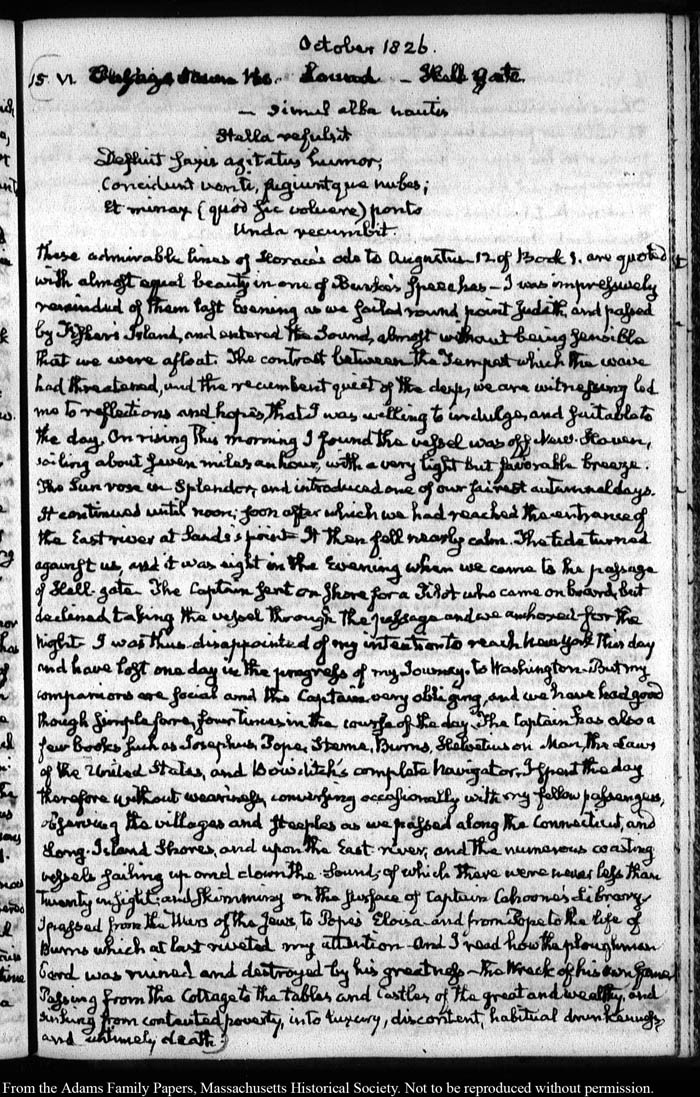 October 1826.
15. VI. Passage down the Sound — Hell gate.
— simul alba nautis
Stella refulsit
Defluit saxis agitatus humor;
Concidunt venti, fugiuntque nubes;
Et minax (quòd sic voluere) ponto
Unda recumbit.
These admirable lines of Horace's ode to Augustus 12. of Book 1. are quoted
with almost equal beauty in one of Burke's Speeches — I was impressively
reminded of them last Evening as we sailed round point Judith, and passed
by Fisher's Island, and entered the Sound, almost without being sensible
that we were afloat. The contrast between the Tempest which the wave
had threatened, and the recumbent quiet of the deep, we are witnessing led
me to reflections and hopes, that I was willing to indulge, and suitable to
the day. On rising this morning I found the vessel was off New-Haven,
sailing about seven miles an hour, with a very light but favorable breeze.
The Sun rose in Splendor, and introduced one of our fairest autumnal days.
It continued until noon; soon after which we had reached the entrance of
the East river at Sands's point. It then fell nearly calm. The tide turned
against us, and it was night in the Evening when we came to the passage
of Hell-gate. The Captain sent on shore for a Pilot who came on board, but
declined taking the vessel through the passage and we anchored for the
night. I was thus disappointed of my intention to reach New York this day
and have lost one day in the progress of my Journey to Washington. But my
companions are social and the Captain very obliging, and we have had good
though simple fare, four times in the course of the day. The Captain has also a
few books such as Josephus, Pope, Sterne, Burns, Helvetius on Man, the Laws
of the United States, and Bowditch's complete Navigator. I spent the day
therefore without weariness, conversing occasionally with my fellow passengers,
observing the villages and steeples as we passed along the Connecticut, and
Long-Island Shores, and upon the East river, and the numerous coasting
vessels sailing up and down the Sound, of which there were never less than
twenty in sight; and skimming on the surface of Captain Cahoone's Library.
I passed from the Wars of the Jews to Pope's Eloisa and from Pope to the life of
Burns which at last riveted my attention. And I read how the ploughman
Bard was ruined and destroyed by his greatness — the wreck of his own fame
Passing from the Cottage to the tables and castles of the great and wealthy, and
sinking from contented poverty, into luxury, discontent, habitual drunkenness,
and untimely death.
From the Adams Family Papers, Massachusetts Historical Society. Not to be reproduced without permission.